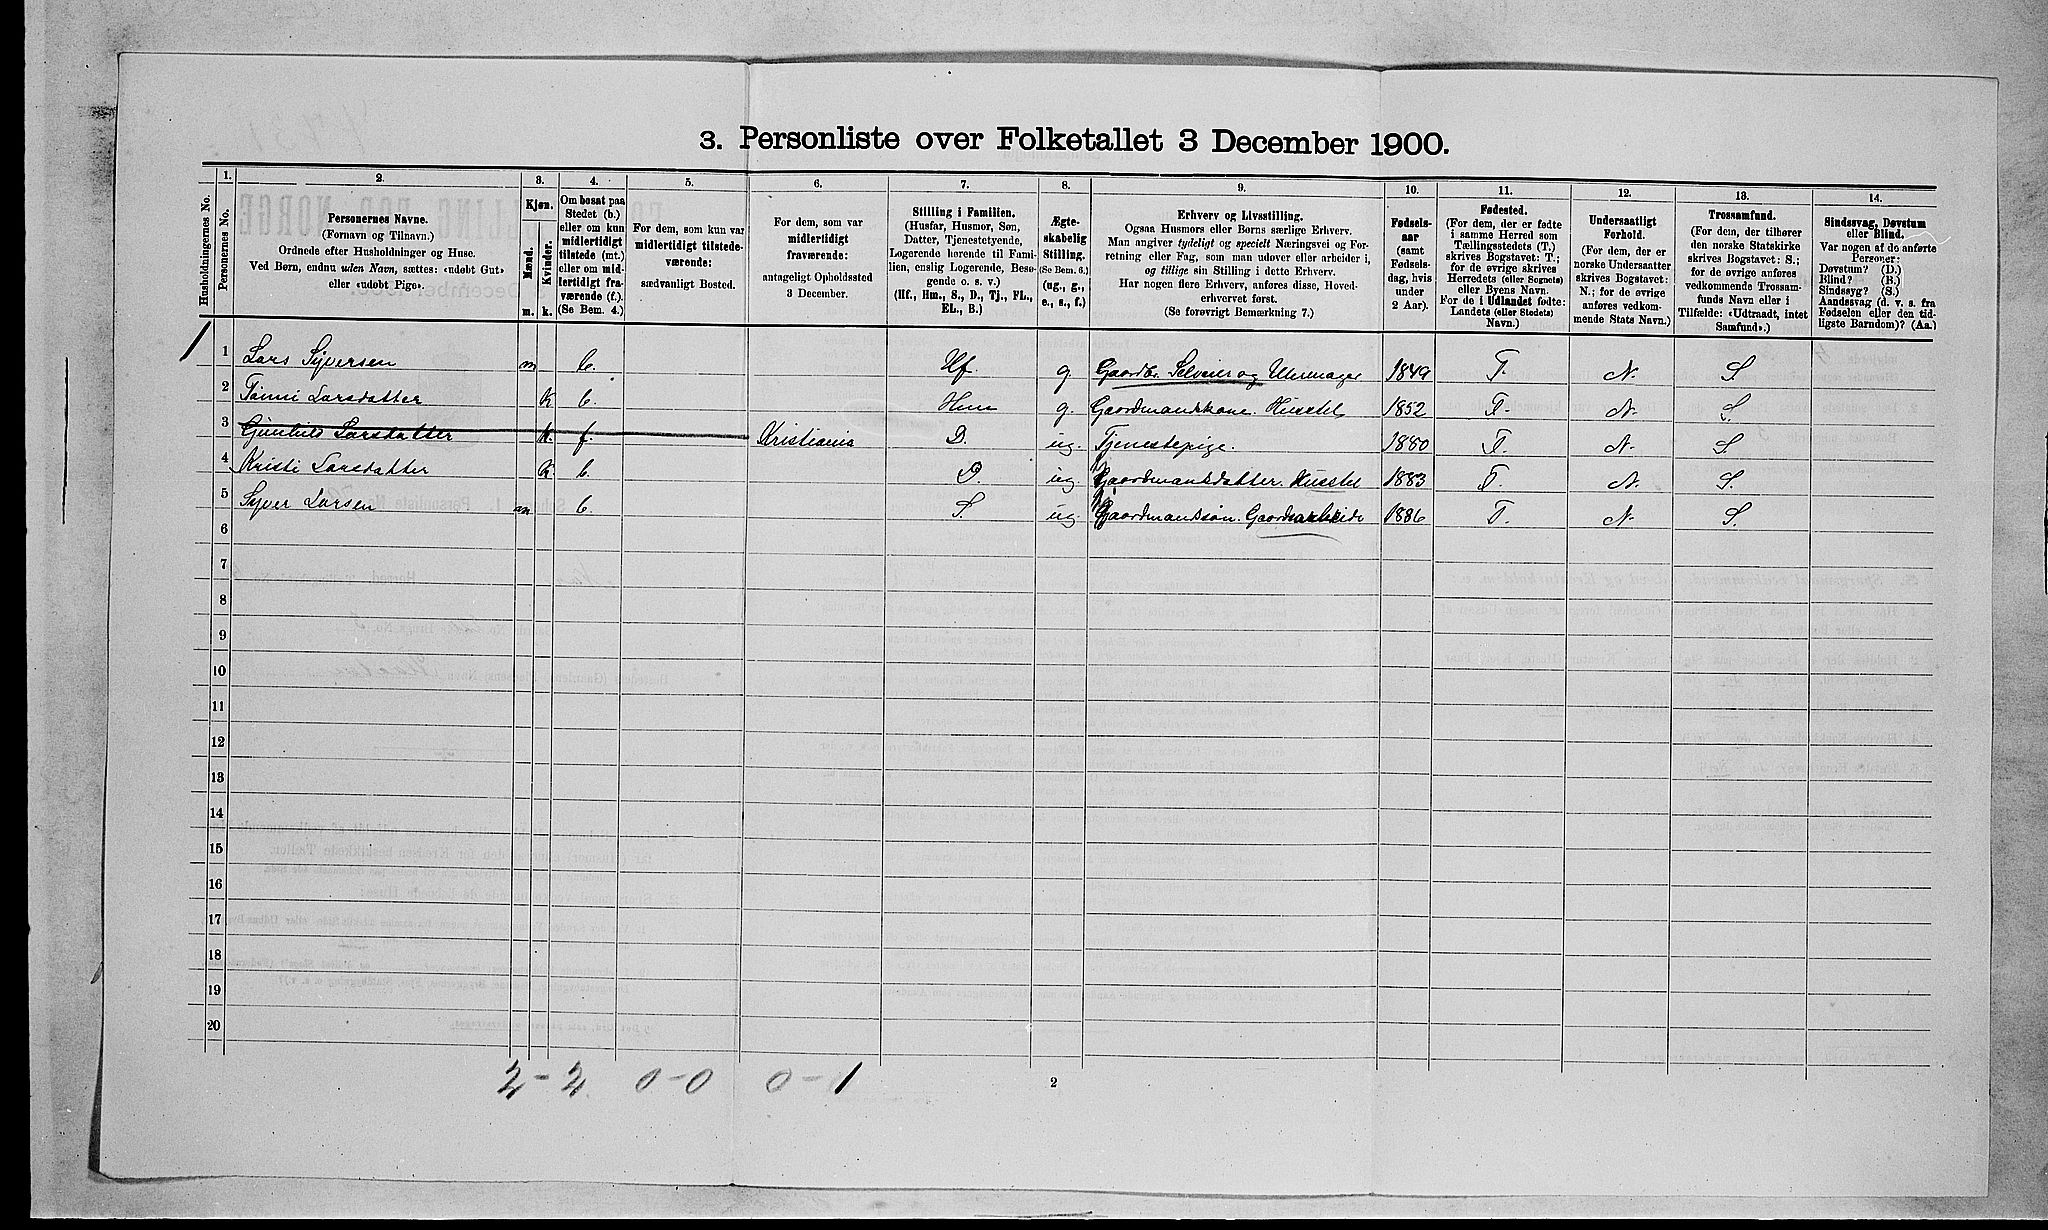 3. Personliste over Folketallet 3 December 1900.
Husholdningernes No.
1. Personernes No.
2. Personernes Navne. (Fornavn og Tilnavn.) Ordnede efter Husholdninger og Huse. Ved Børn, endnu uden Navn, sættes: «udøbt Gut» eller «udøbt Pige».
3. Kjøn. Mænd. m. Kvinder. k.
4. Om bosat paa Stedet (b.) eller om kun midlertidigt tilstede (mt.) eller om midlertidigt fraværende (f.). (Se Bem. 4.)
5. For dem, som kun var midlertidigt tilstedeværende: sædvanligt Bosted.
6. For dem, som var midlertidigt fraværende: antageligt Opholdssted 3 December.
7. Stilling i Familien. (Husfar, Husmor, Søn, Datter, Tjenestetyende, Logerende hørende til Familien, enslig Logerende, Besøgende o. s. v.) (Hf., Hm., S., D., Tj., FL., EL., B.)
8. Ægteskabelig Stilling. (Se Bem. 6.) (ug., g., e., s., f.)
9. Erhverv og Livsstilling. Ogsaa Husmors eller Børns særlige Erhverv. Man angiver tydeligt og specielt Næringsvei og Forretning eller Fag, som man udøver eller arbeider i, og tillige sin Stilling i dette Erhverv. Har nogen flere Erhverv, anføres disse, Hovederhvervet først. (Se forøvrigt Bemærkning 7.)
10. Fødselsaar (samt Fødselsdag, hvis under 2 Aar).
11. Fødested. (For dem, der er fødte i samme Herred som Tællingsstedets (T.) skrives Bogstavet: T.; for de øvrige skrives Herredets (eller Sognets) eller Byens Navn. For de i Udlandet fødte: Landets (eller Stedets) Navn.)
12. Undersaatligt Forhold. (For dem, der er norske Undersaatter skrives Bogstavet: N.; for de øvrige anføres vedkommende Stats Navn.)
13. Trossamfund. (For dem, der tilhører den norske Statskirke skrives Bogstavet: S.; for de øvrige anføres vedkommende Trossamfunds Navn eller i Tilfælde: «Udtraadt, intet Samfund».)
14. Sindssvag, Døvstum eller Blind. Var nogen af de anførte Personer: Døvstum? (D.) Blind? (B.) Sindssyg? (S.) Aandssvag (d. v. s. fra Fødselen eller den tidligste Barndom)? (Aa.)
1 1 Lars Syversen m b. Hf. g Gaardbr. Selveier og 1849 T. N. S.
2 Tonni Larsdatter K b. Hm g. Gaardmandskone. Husstel 1852 T. N. S.
3 Gunhild Larsdatter K. f. Kristiania D. ug. Tjenestepige. 1880 T. N. S.
4 Kristi Larsdatter K b. D. ug. Gaardmandsdatter. Husstel 1883 T. N. S.
5 Syver Larsen m b. S. ug Gaardmandssøn. Gaardsarbeide 1886 T. N. S.
6
7
8
9
10
11
12
13
14
15
16
17
18
19
20
2 - 2 0 - 0 0 - 1 2